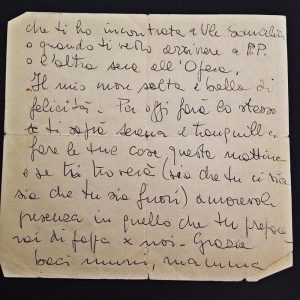 che ti ho incontrata a V.le Somalia
o quando ti vedo arrivare a P.P.
o l'altra sera all'Opera.
Il mio cuore salta e balla di
felicità. Per oggi farà lo stesso
se ti saprà serena e tranquilla
fare le tue cose, questa mattina
e se tu troverai (sia che tu ci sia
sia che tu sia fuori) amorevole
presenza in quello che tu prepare
rai di pappa x noi - Grazie
baci mamma